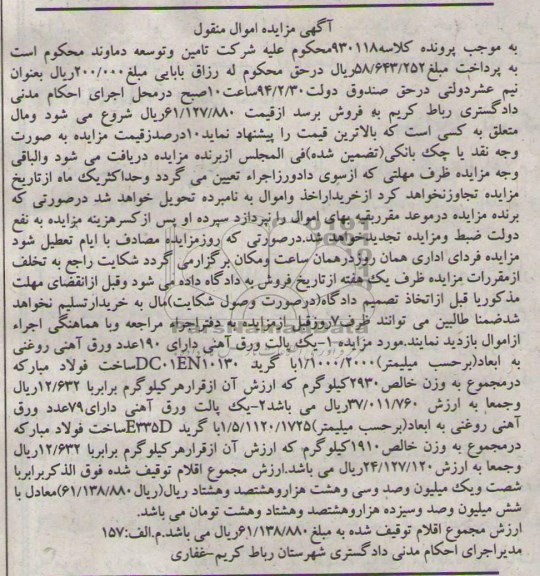 آگهی مزایده اموال منقول
به موجب پرونده کلاسه۹۳۰۱۱۸محکوم علیه شرکت تامین وتوسعه دماوند محکوم است
به پرداخت مبلغ۵۸/۶۴۳/۲۵۲ریال درحق محکوم له رزاق بابایی مبلغ۲۰۰/۰۰۰ریال بعنوان
نیم عشردولتی درحق صندوق دولت۹۴/۲/۳۰ساعت۱۰صبح درمحل اجرای احکام مدنی
دادگستری رباط کریم به فروش برسد ازقیمت ۶۱/۱۲۷/۸۸۰ریال شروع می شود ومال
متعلق به کسی است که بالاترین قیمت را پیشنهاد نماید۱۰درصدزقیمت مزایده به صورت
وجه نقد یا چک بانکی(تضمین شده)فی المجلس ازبرنده مزایده دریافت می شود والباقی
وجه مزایده ظرف مهلتی که ازسوی دادورزاجراء تعیین می گردد وحداکثریک ماه ازتاریخ
مزایده تجاوزنخواهد کرد ازخریداراخذ واموال به نامبرده تحویل خواهد شد درصورتی که
برنده مزایده درموعد مقرربقیه بهای اموال را نپردازد سپرده او پس ازکسرهزینه مزایده به نفع
دولت ضبط ومزایده تجدیدخواهد شد.درصورتی که روزمزایده مصادف با ایام تعطیل شود
مزایده فردای اداری همان روزدرهمان ساعت ومکان برگزارمی گردد شکایت راجع به تخلف
ازمقررات مزایده ظرف یک هفته ازتاریخ فروش به دادگاه داده می شود وقبل ازانقضای مهلت
مذکوریا قبل ازاتخاذ تصمیم دادگاه(درصورت وصول شکایت)مال به خریدارتسلیم نخواهد
شدضمنا طالبین می توانند ظرف۷روزقبل ازمزایده به دفتراجراء مراجعه وبا هماهنگی اجراء
ازاموال بازدید نمایند.مورد مزایده۱-یک پالت ورق آهنی دارای ۱۹۰عدد ورق آهنی روغنی
به ابعاد(برحسب میلیمتر)۱/۱۰۰۰/۲۰۰۰با گرید DC۰۱EN۱۰۱۳۰ساخت فولاد مبارکه
درمجموع به وزن خالص۲۹۳۰کیلوگرم که ارزش آن ازقرارهرکیلوگرم برابربا ۱۲/۶۳۲ریال
وجمعا به ارزش ۳۷/۰۱۱/۷۶۰ریال می باشد۲-یک پالت ورق آهنی دارای۷۹عدد ورق
آهنی روغنی به ابعاد(برحسب میلیمتر)۱/۵/۱۱۲۰/۱۷۲۵با گرید E۳۳۵Dساخت فولاد مبارکه
درمجموع به وزن خالص۱۹۱۰کیلوگرم که ارزش آن ازقرارهرکیلوگرم برابربا ۱۲/۶۳۲ریال
وجمعا به ارزش۲۴/۱۲۷/۱۲۰ریال می باشد.ارزش مجموع اقلام توقیف شده فوق الذکربرابربا
شصت ویک میلیون وصد وسی وهشت هزاروهشتصد وهشتاد ریال(ریال۶۱/۱۳۸/۸۸۰)معادل با
شش میلیون وصد وسیزده هزاروهشتصد وهشتاد وهشت تومان می باشد.
ارزش مجموع اقلام توقیف شده به مبلغ۶۱/۱۳۸/۸۸۰ریال می باشد.م.الف:۱۵۷
مدیراجرای احکام مدنی دادگستری شهرستان رباط کریم-غفاری